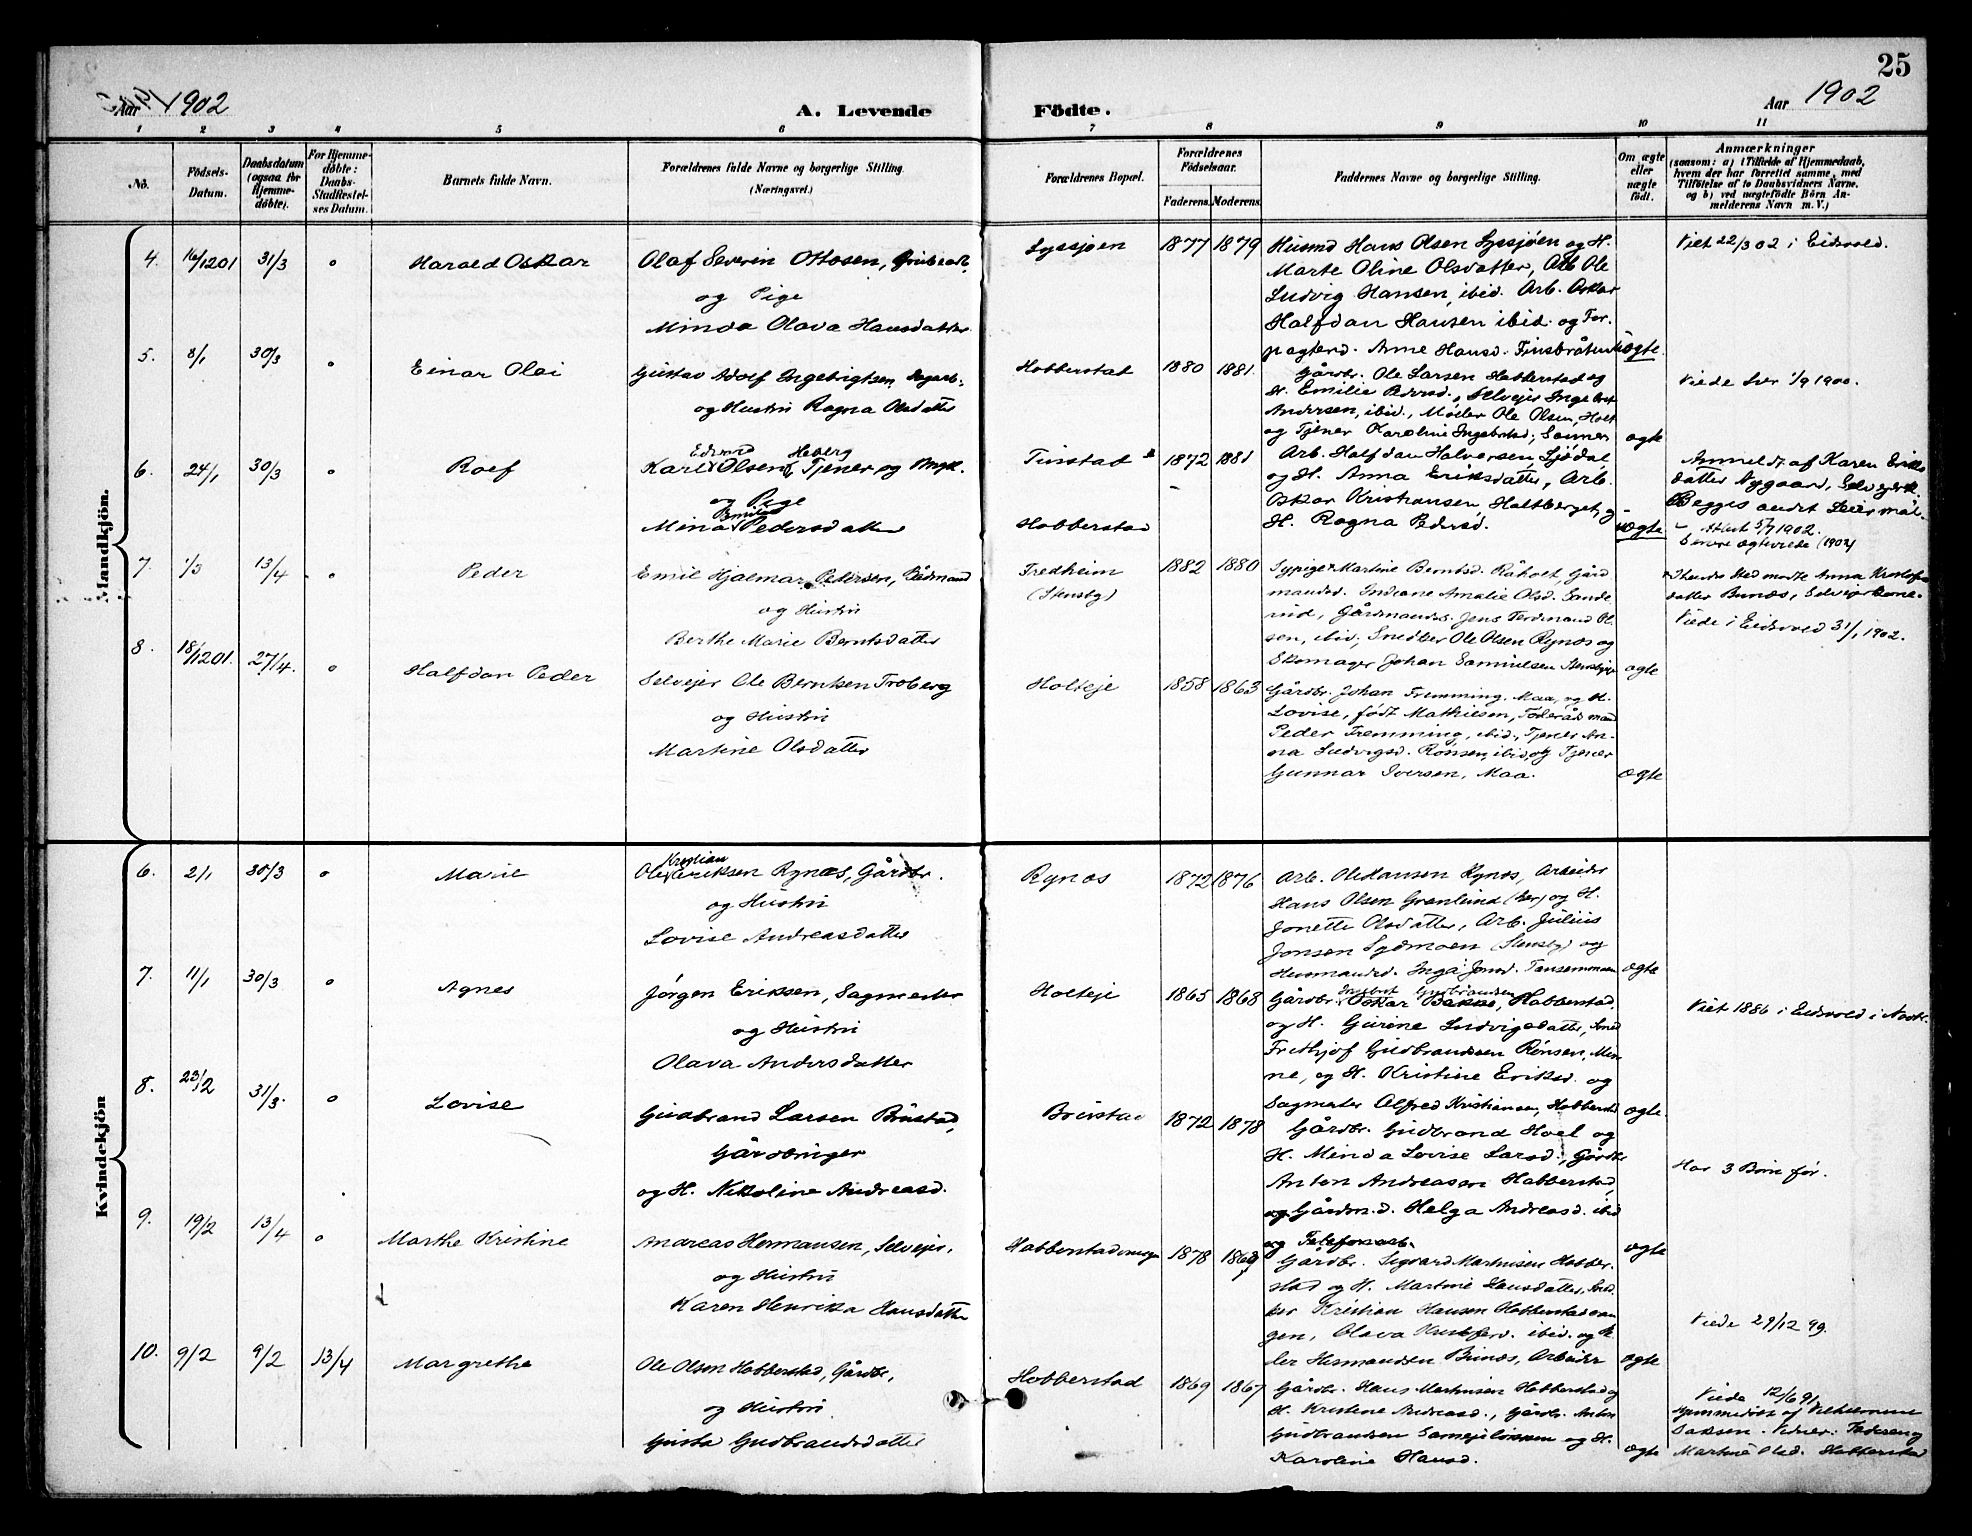 25
Aar 1902
A. Levende
Födte.
Aar 1902
1 2 3 4 5 6 7 8 9 10 11
No.
Födsels-
Datum.
Daabsdatum
(ogsaa for
Hjemme-
döbte).
For Hjemme-
döbte:
Daabs-
Stadfæstel-
ses Datum.
Barnets fulde Navn.
Forældrenes fulde Navne og borgerlige Stilling.
(Næringsvei.)
Forældrenes Bopæl.
Forældrenes
Födselsaar.
Faderens.
Moderens.
Faddernes Navne og borgerlige Stilling.
Om ægte
eller
uægte
födt.
Anmærkninger
(saasom: a) i Tilfælde af Hjemmedaab,
hvem der har forrettet samme, med
Tilföielse af to Daabsvidners Navne,
og b) ved uægtefödte Börn An-
melderens Navn m. V.)
Mandkjön.
4. 16/12 01 31/3 " Harald Oskar
Olaf Severin Ottosen,
og Pige
Minda Olava Hansdatter
Lyssjøen 1877 1879
Husmd Hans Olsen Lyssjøen og H.
Marte Oline Olsdatter, Arb. Ole
Ludvig Hansen, ibid. Arb. Oskar
Halfdan Hansen ibid. og For-
pagterd. Anne Hansd. Finsbråten
uægte.
Viet 22/3 02 i Eidsvold.
5. 8/1 30/3 " Einar Olai
Gustav Adolf Ingebrigtsen, Dagarb.
og Hustru Ragna Olsdatter
Hobberstad 1880 1881.
Gårdbr. Ole Larsen Hobberstad og
H. Emilie Pedersd., Selveier Ingebret
Andersen, ibid., Møller Ole Olsen, Holt
og Tjener Karoline Ingebrtsd,
ægte
Viede her 1/9 1900.
6. 24/1 30/3 " Rolf
Edvard Heberg
Karl Olsen, Tjener og Ungk.
og Pige
Emilie
Mina Pedersdatter
Tinstad 1872 1881
Hobberstad
Arb. Halfdan Halversen, Sjödal
og H. Anna Eriksdatter, Arb.
Oskar Kristiansen, Holtberget, og
H. Ragna Pedersd.
uægte
Anmeldt af Karen Eriks-
datter Nygaard, Selveierk.
Begges andet Leiermål.
- Attest 5/7 1902.
Senere ægteviede (1902)
7. 1/3 13/4 " Peder
Emil Hjalmar Petersen, Bådmand
og Hustru
Berthe Marie Berntsdatter
Fredheim
(Stensby)
1882 1880
Sypige Martine Berntsd. Råholt, Gård-
mandsd. Indiane Amalie Olsd. Sande-
rud, Gårdmands. Jens Ferdinand Ol-
sen, ibid; Snedker Ole Olsen Rynæs og
Skomager Johan Samuelsen Stensby
ægte
I hendes Sted mødte Anna Kristofers-
datter Bunæs, Selveierkone.
Viede i Eidsvold 31/1 1902.
8. 18/12 01. 27/4. " Halfdan Peder
Selveier Ole Berntsen Troberg
og Hustru
Martine Olsdatter
Holteje 1858 1863
Gårdbr. Johan Fremming, Maa, og H.
Lovise, født Mathiesen, Føderådsmand
Peder Fremming, ibid., Tjener An-
na Ludvigsd. Rønsen, ibid, og Tjener
Gunnar Iversen, Maa.
ægte
Kvindekjön
6. 2/1 30/3 " Marie
Kristian
Ole Eriksen Rynæs, Gårdbr.
og Hustru
Lovise Andreasdatter
Rynæs 1872 1876
Arb. Ole Hansen Rynæs, Arbeider
Hans Olsen Grønlund (her) og H.
Jonette Olsdatter, Arb. Julius
Jonsen Sydmoen (Stensby) og
Husmandsd. Inga Jensd. Tansemmoen
ægte
7. 11/1 30/3 " Agnes
Jörgen Eriksen, Sagmester
og Hustru
Olava Andersdatter
Holteje 1865 1868
Ingebret Gudbrandsen
Gårdbr. Oskar Bakke, Hobberstad,
og H. Gurine Ludvigsdatter, Smed
Frithjof Gudbrandsen Rønsen, Min-
ne, og H. Kristine Eriksd. og
Sagmester Alfred Kristiansen, Hobberstad
ægte
Viet 1886 i Eidsvold i Novbr.
8. 23/2 31/3. " Lovise
Gudbrand Larsen Brustad,
Gårdbruger
og H. Nikoline Andreasd.
Brustad 1872 1878
Gårdbr. Gudbrand Hoel og
H. Minda Lovise Larsd., Gårdbr
Anton Andreasen Hobberstad,
og Gårdm.d. Helga Andreasd. ibid
og Telefonarb.
ægte
Har 3 Børn før.
9. 19/2 13/4 " Marthe Kristine
Andreas Hermansen, Selveier,
og Hustru
Karen Henrika Hansdatter
Hobberstadvangen 1878 1869
Gårdbr. Sigvard Martinsen Hobber-
stad og H. Martine Hansdatter, Sned-
ker Kristian Hansen Hobberstadvan-
gen, Olava Kristofersd. ibid. og
Hermansen Bunæs, Arbeider
ægte
Viede 29/12 99.
10. 9/2 9/2 13/4 Margrethe
Ole Olsen Hobberstad, Gårdbr.,
og Hustru
Gusta Gudbrandsdatter
Hobberstad 1869 1867
Gårdbr. Hans Martinsen Hobberstad og
H. Kristine Andreasd., Gårdbr. Anton
Gudbrandsen Samejeløkken og H.
Karoline Hansd.
ægte
Viede 12/6 91
Hjemmedøbt af Vilhelmine
Saksen. Vidner: Faderen og
Martine Olsd. Hobberstad